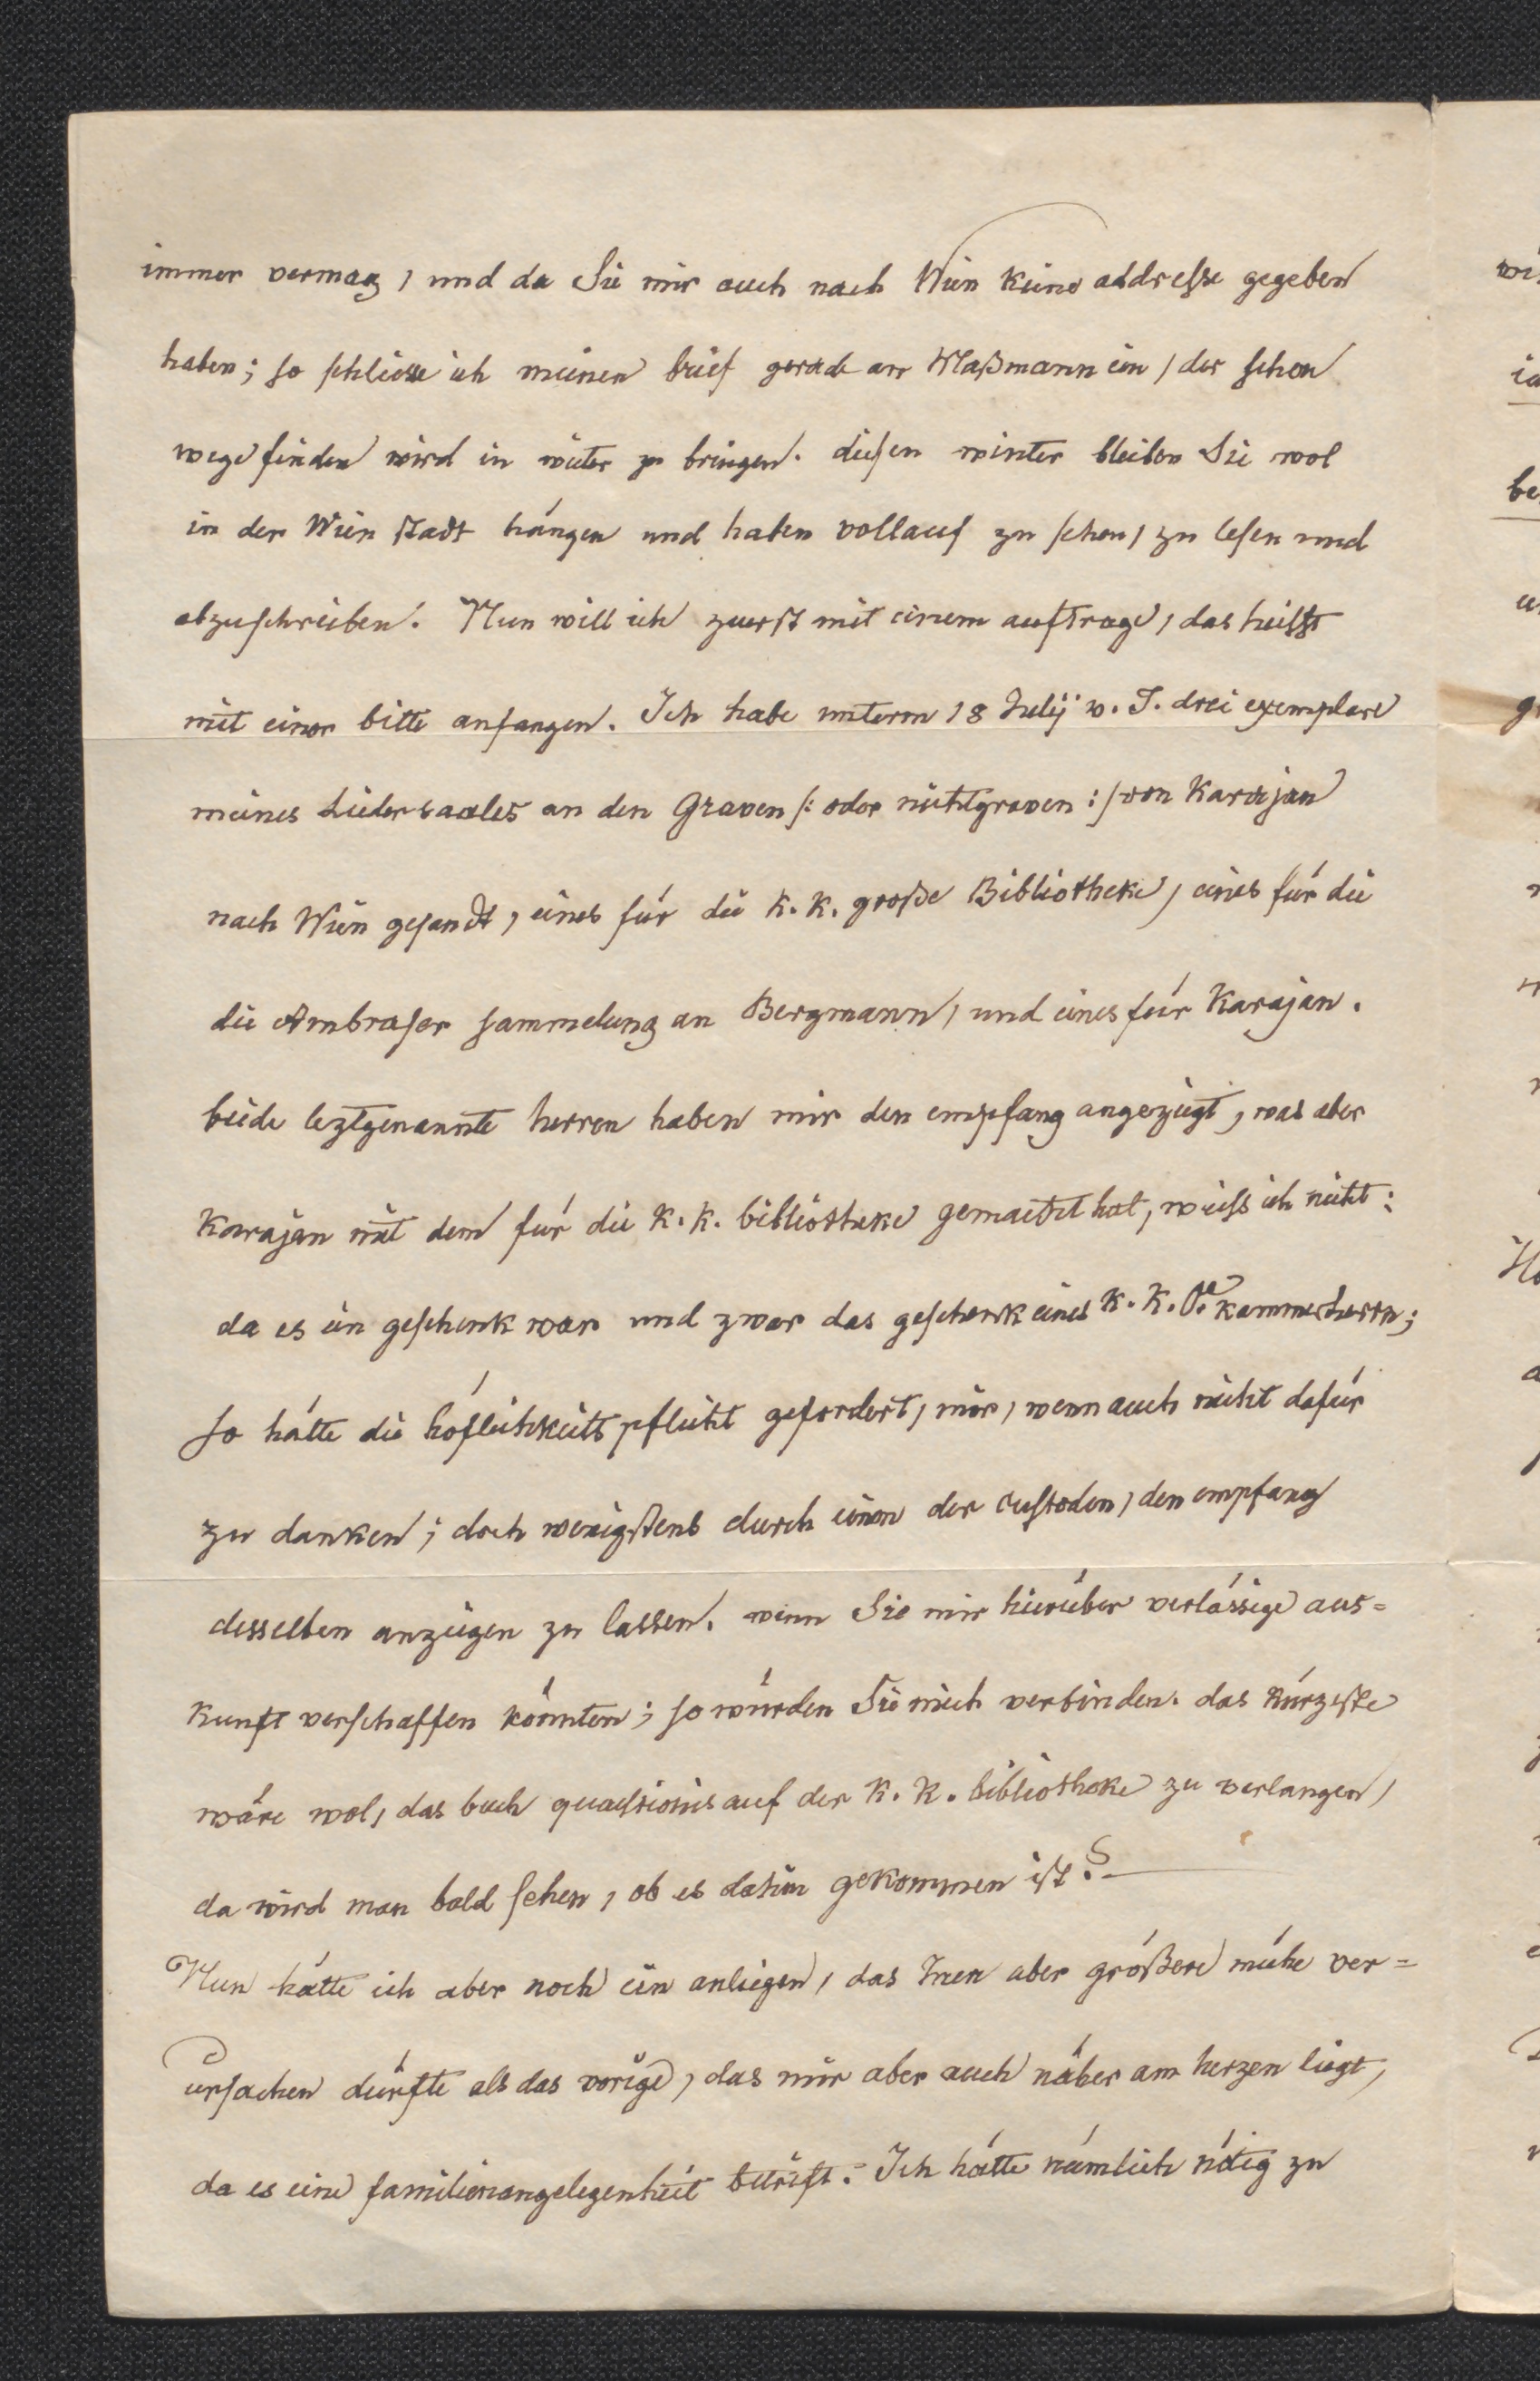 immer vermag, und da Sie mir auch nach Wien keine addresse gegeben
haben; so schliesse ich meinen brief gerade an Maßmann ein, der schon
wege finden wird in weiter zu bringen. diesen winter bleiben Sie wol
in der Wien stadt hängen und haben vollauf zu sehen, zu lesen und
abzuschreiben. Nun will ich zuerst mit einem auftrage, das heisst
mit einer bitte anfangen. Ich habe unterm 18 Julij v. J. drei exemplare
meines Liedersaales an den Graven /: oder nichtgraven :/ von Karajan
nach Wien gesandt, eines für die k. k. große Bibliotheke, eines für die
die Ambraser sammelung an Bergmann, und eines für Karajan.
beide leztgenannte herren haben mir den empfang angezeigt, was aber
Karajan mit dem für die k. k. bibliotheke gemacht hat, weiss ich nicht:
da es ein geschenk war und zwar das geschenk eines k. k. kammerherrn;
so hätte die höflichkeits pflicht gefordert, mir, wenn auch nicht dafür
zu danken; doch wenigstens durch einen der custoden, den empfang
desselben anzeigen zu lassen. wenn Sie mir hierüber verlässige aus=
kunft verschaffen könnten; so würden Sie mich verbinden. das kürzeste
wäre wol, das buch quaestionis auf der k. k. bibliotheke zu verlangen,
da wird man bald sehen, ob es dahin gekommen ist? —
Nun hätte ich aber noch ein anliegen, das Inen aber größere mühe ver=
ursachen dürfte als das vorige, das mir aber auch näher am herzen liegt,
da es eine familienangelegenheit betrift. Ich hätte nämlich nötig zu